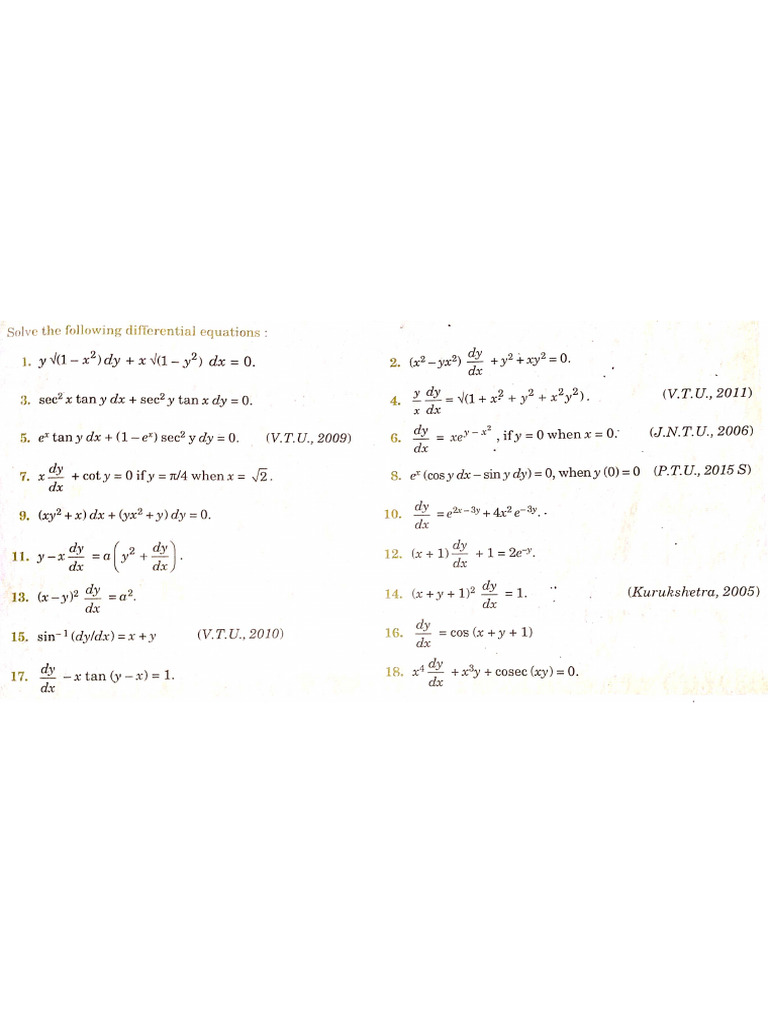 Solve the following differential equations :
1. y √(1 – x²) dy + x √(1 – y²) dx = 0.
2. (x² – yx²) dy/dx + y² + xy² = 0.
3. sec² x tan y dx + sec² y tan x dy = 0.
4. y/x dy/dx = √(1 + x² + y² + x²y²). (V.T.U., 2011)
5. eˣ tan y dx + (1 – eˣ) sec² y dy = 0. (V.T.U., 2009)
6. dy/dx = xe^(y – x²), if y = 0 when x = 0. (J.N.T.U., 2006)
7. x dy/dx + cot y = 0 if y = π/4 when x = √2.
8. eˣ (cos y dx – sin y dy) = 0, when y (0) = 0 (P.T.U., 2015 S)
9. (xy² + x) dx + (yx² + y) dy = 0.
10. dy/dx = e^(2x – 3y) + 4x² e^(–3y).
11. y – x dy/dx = a(y² + dy/dx).
12. (x + 1) dy/dx + 1 = 2e^(–y).
13. (x – y)² dy/dx = a².
14. (x + y + 1)² dy/dx = 1. (Kurukshetra, 2005)
15. sin⁻¹ (dy/dx) = x + y (V.T.U., 2010)
16. dy/dx = cos (x + y + 1)
17. dy/dx – x tan (y – x) = 1.
18. x⁴ dy/dx + x³y + cosec (xy) = 0.